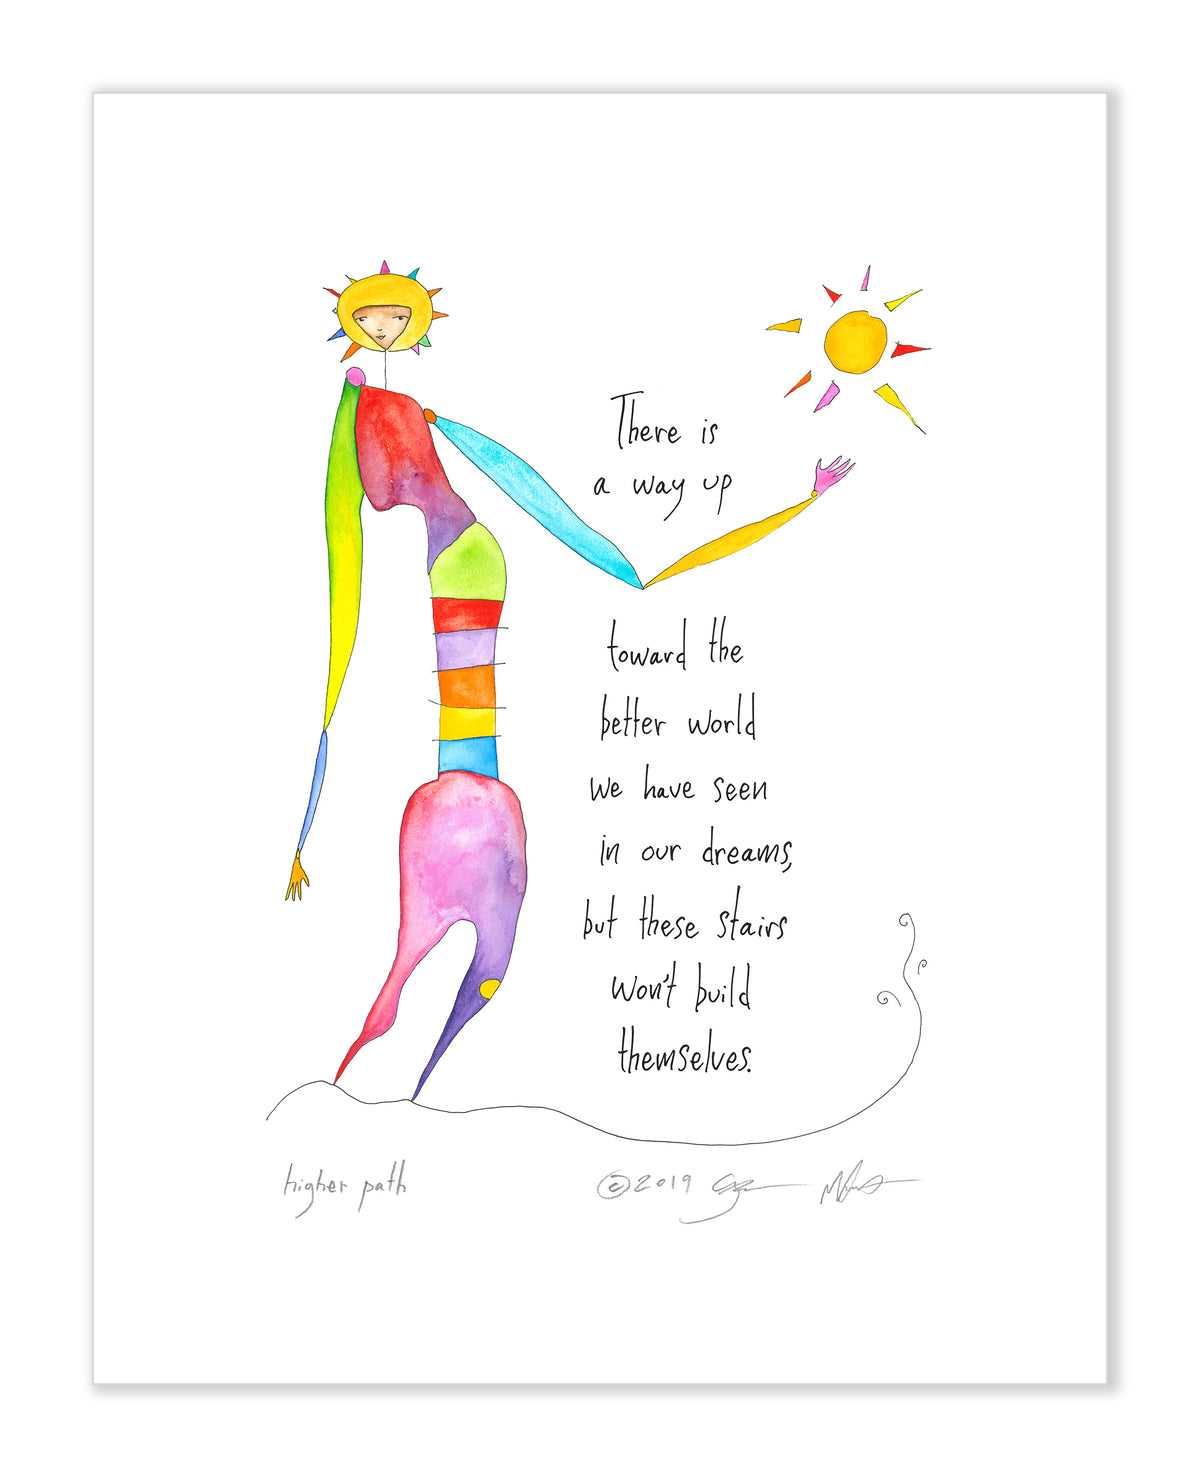 There is
a way up
toward the
better world
we have seen
in our dreams,
but these stairs
won't build
themselves.
higher path
©2019